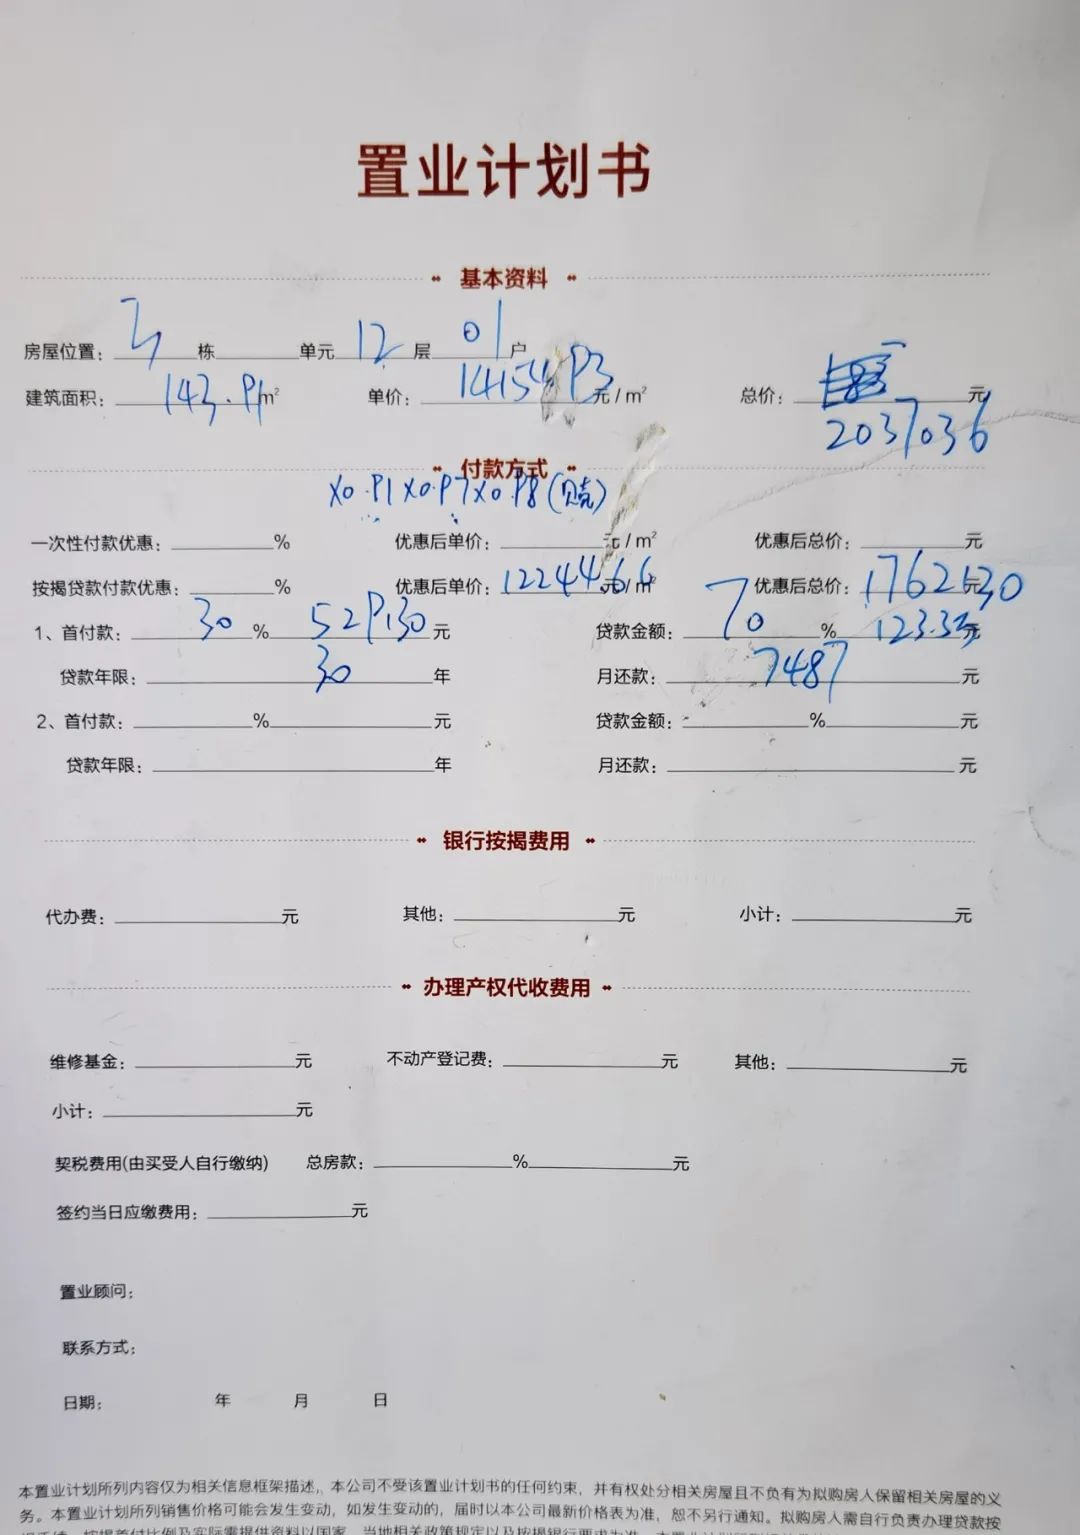 置业计划书
基本资料
房屋位置：3栋 单元12层01户
建筑面积：143.91m² 单价：14154.93元/m² 总价：元
2037036
付款方式
X0.91X0.97X0.98(贝壳)
一次性付款优惠：%  优惠后单价：元/m² 优惠后总价：元
按揭贷款付款优惠：% 优惠后单价：12244.66元/m² 优惠后总价：1762130元
1、首付款：30% 529130元 贷款金额：70% 123.3万元
贷款年限：30年 月还款：7487元
2、首付款：% 元 贷款金额：% 元
贷款年限：年 月还款：元
银行按揭费用
代办费：元 其他：元 小计：元
办理产权代收费用
维修基金：元 不动产登记费：元 其他：元
小计：元
契税费用(由买受人自行缴纳) 总房款：% 元
签约当日应缴费用：元
置业顾问：
联系方式：
日期： 年 月 日
本置业计划所列内容仅为相关信息框架描述，本公司不受该置业计划书的任何约束，并有权处分相关房屋且不负有为拟购房人保留相关房屋的义
务。本置业计划所列销售价格可能会发生变动，如发生变动的，届时以本公司最新价格表为准，恕不另行通知。拟购房人需自行负责办理贷款按
揭手续，按揭首付比例及实际需提供资料以国家、当地相关政策规定以及按揭银行要求为准。